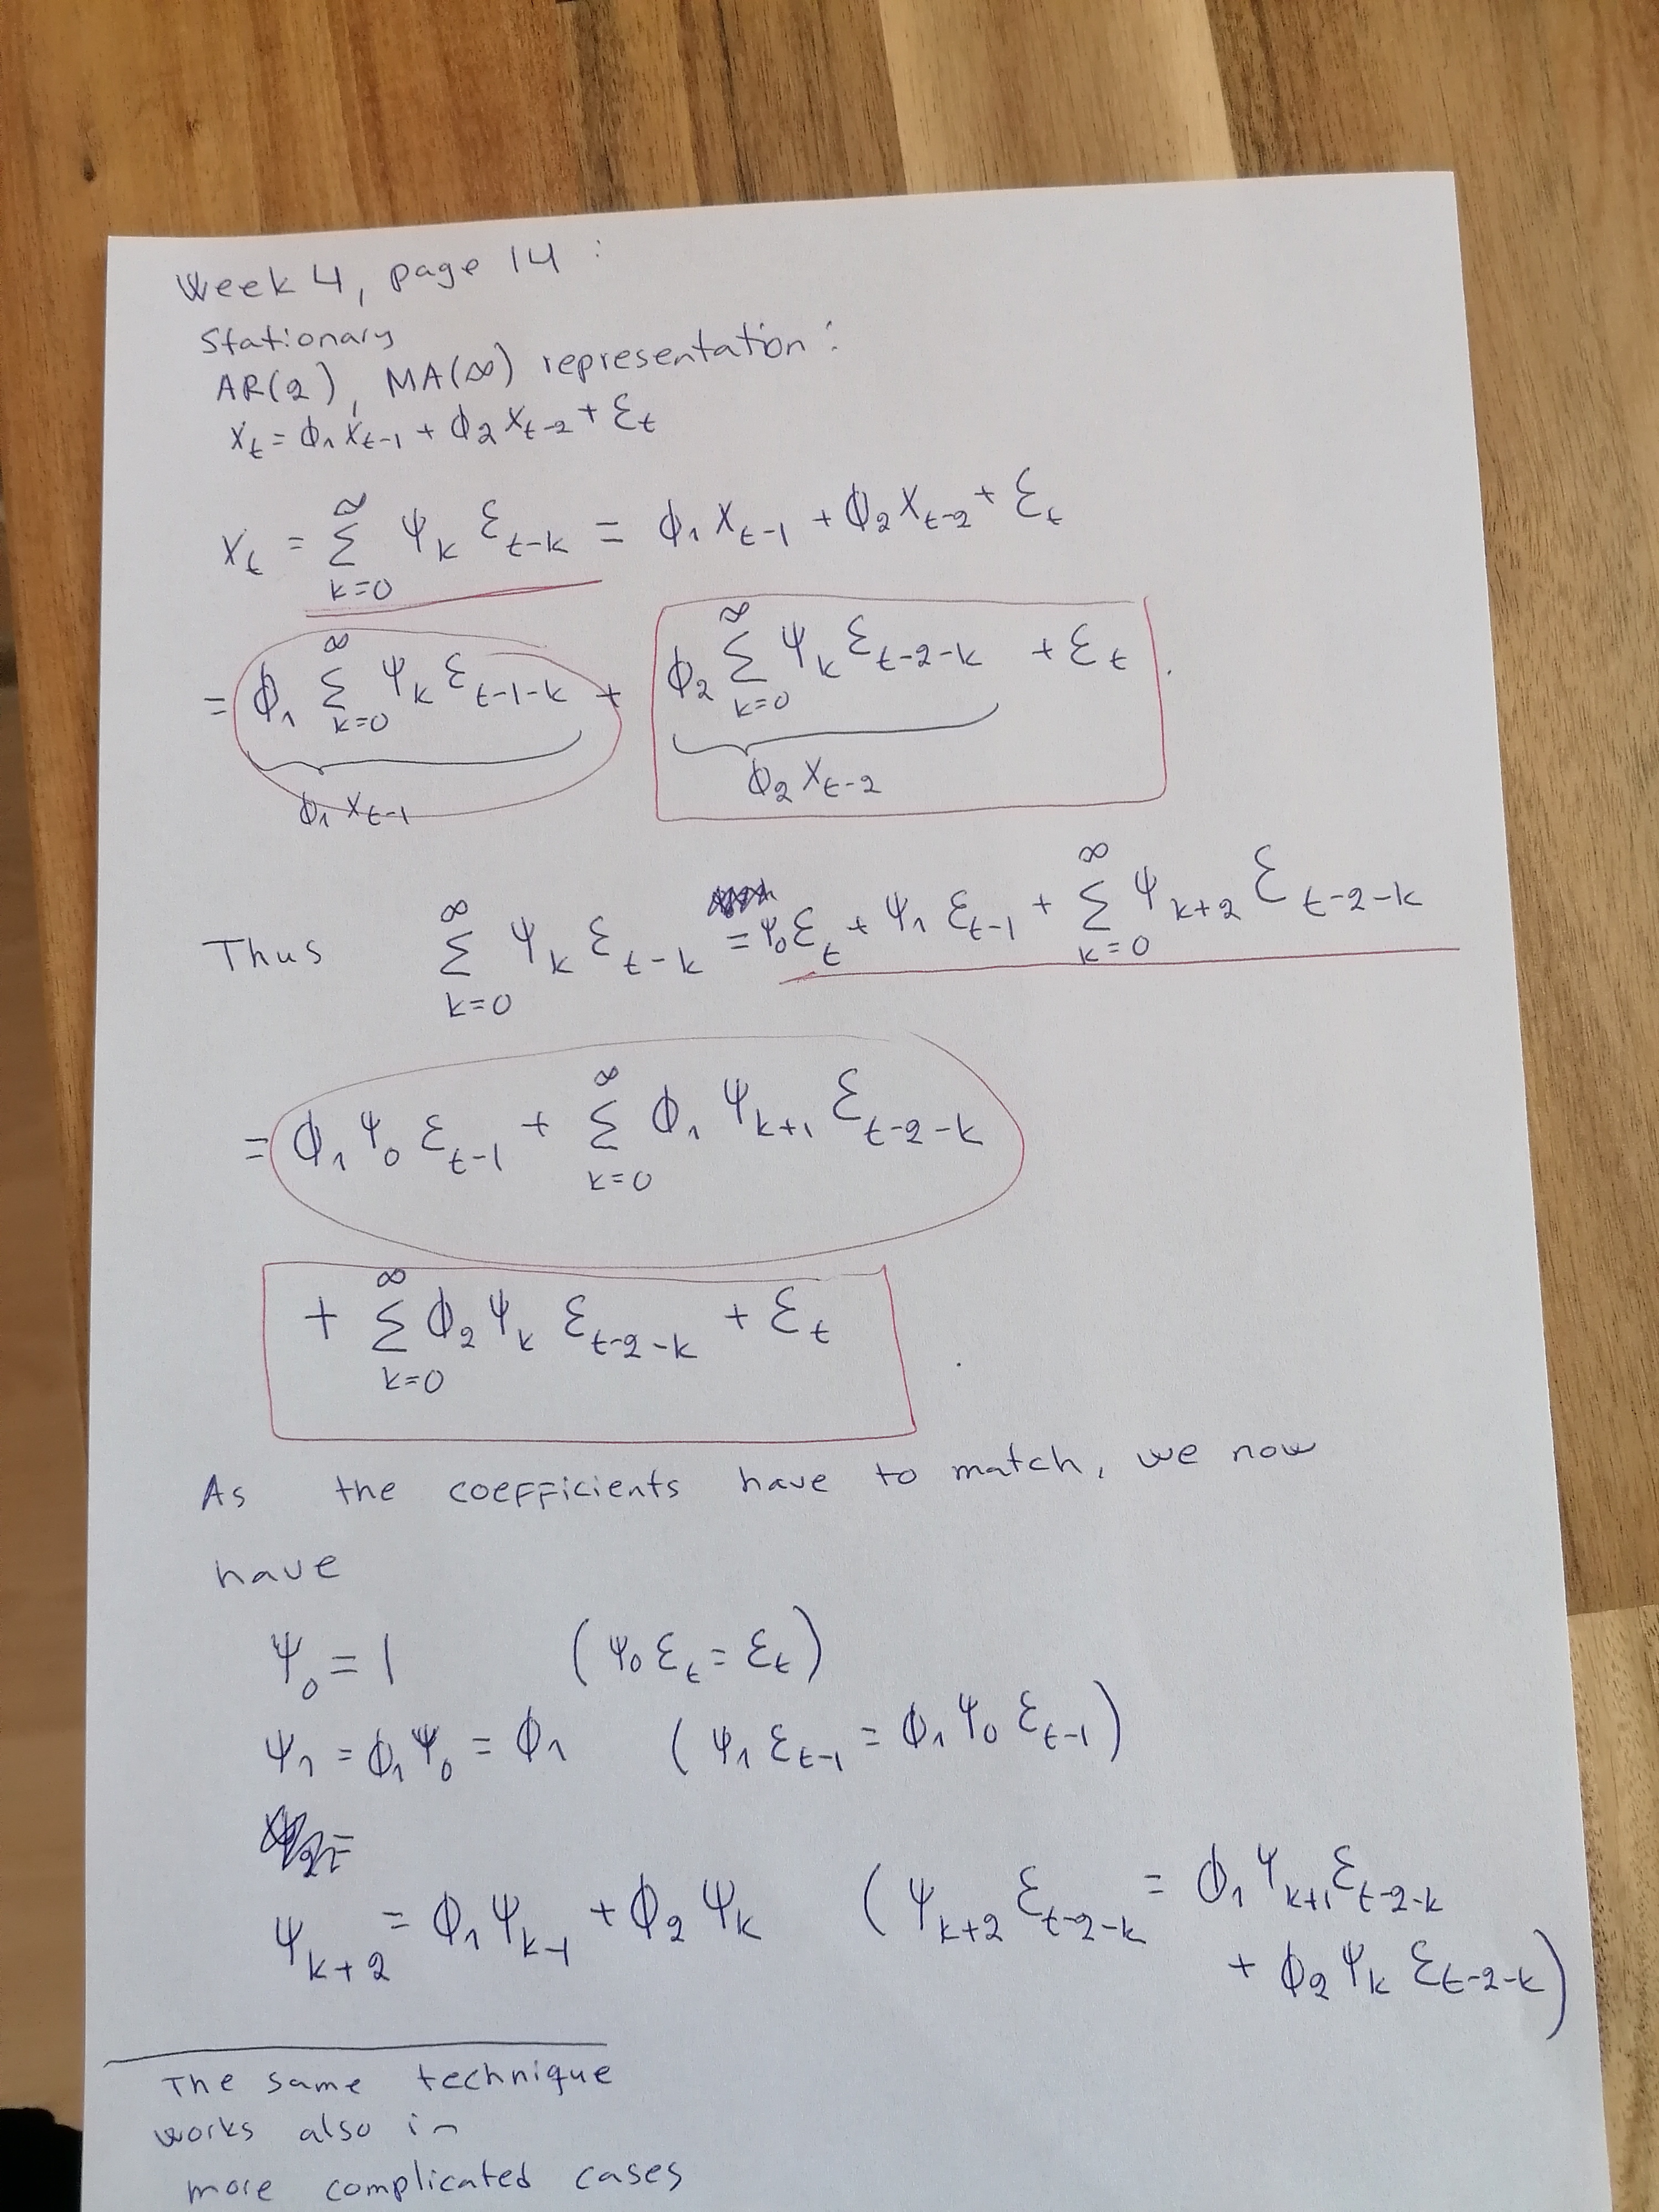 Week 4, page 14:
Stationary
AR(2), MA(∞) representation:
X_t = ϕ_1 X_{t-1} + ϕ_2 X_{t-2} + ε_t
X_t = ∑_{k=0}^{∞} ψ_k ε_{t-k} = ϕ_1 X_{t-1} + ϕ_2 X_{t-2} + ε_t
= ϕ_1 ∑_{k=0}^{∞} ψ_k ε_{t-1-k} + ϕ_2 ∑_{k=0}^{∞} ψ_k ε_{t-2-k} + ε_t.
ϕ_1 X_{t-1} ϕ_2 X_{t-2}
Thus ∑_{k=0}^{∞} ψ_k ε_{t-k} = ψ_0 ε_t + ψ_1 ε_{t-1} + ∑_{k=0}^{∞} ψ_{k+2} ε_{t-2-k}
= ϕ_1 ψ_0 ε_{t-1} + ∑_{k=0}^{∞} ϕ_1 ψ_{k+1} ε_{t-2-k}
+ ∑_{k=0}^{∞} ϕ_2 ψ_k ε_{t-2-k} + ε_t .
As the coefficients have to match, we now
have
ψ_0 = 1 (ψ_0 ε_t = ε_t)
ψ_1 = ϕ_1 ψ_0 = ϕ_1 (ψ_1 ε_{t-1} = ϕ_1 ψ_0 ε_{t-1})
ψ_{k+2} = ϕ_1 ψ_{k-1} + ϕ_2 ψ_k (ψ_{k+2} ε_{t-2-k} = ϕ_1 ψ_{k+1} ε_{t-2-k}
+ ϕ_2 ψ_k ε_{t-2-k})
The same technique
works also in
more complicated cases